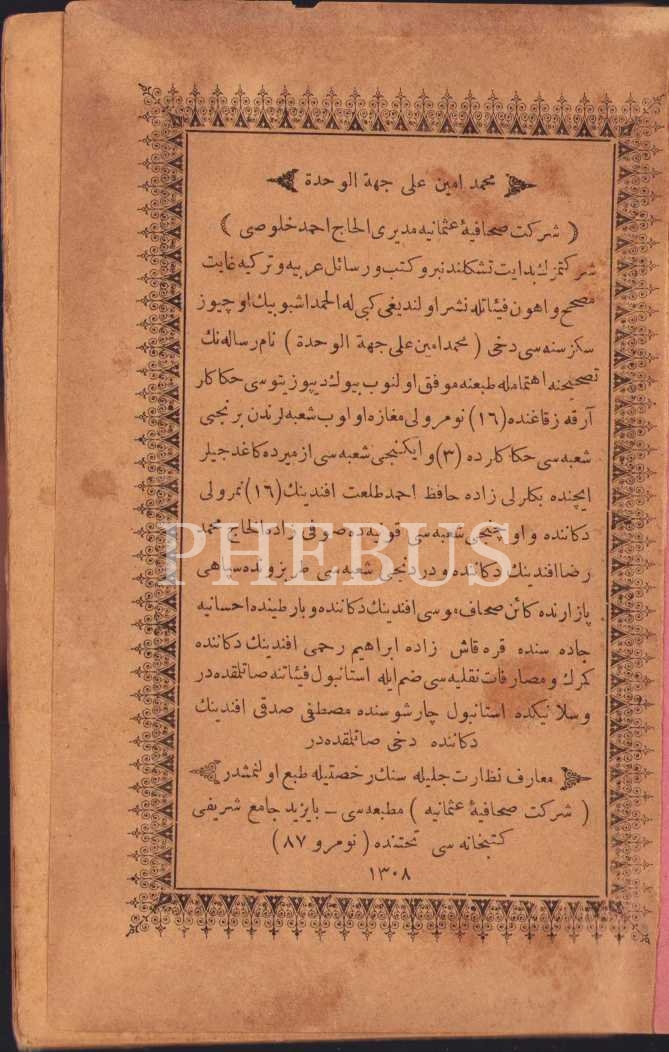 محمد امین علی جهة الوحدة
( شرکت صحافیهٔ عثمانیه مدیری الحاج احمد خلوصی )
شرکتمزك بدایت تشکلندنبرو کتب و رسائل عربیه و ترکیه غایت
مصحح و اهون فیئاتله نشر اولندیغی کبی له الحمد اشبو بیك اوچیوز
سکز سنه سی دخی ( محمد امین علی جهة الوحدة ) نام رساله نك
تصحیحنه اهتمامله طبعنه موفق اولنوب بیوك دیپوزیتوسی حکاکلر
آرقه زقاغنده (١٦) نومرولی مغازه اولوب شعبه لرندن برنجی
شعبه سی حکاکلرده (٣) و ایکنجی شعبه سی ازمیرده کاغدجیلر
ایچنده بکلرلی زاده حافظ احمد طلعت افندینك (١٦) نمرولی
دکاننده و اوچنجی شعبه سی قونیه ده صوفی زاده الحاج محمد
رضا افندینك دکاننده و دردنجی شعبه سی طربزونده سپاهی
پازارنده کائن صحاف موسی افندینك دکاننده و بارطینده احسانیه
جاده سنده قره قاش زاده ابراهیم رحمی افندینك دکاننده
کمرك و مصارفات نقلیه سی ضم ایله استانبول فیئاتنه صاتلقده در
و سلانیکده استانبول چارشوسنده مصطفی صدقی افندینك
دکاننده دخی صاتلقده در
معارف نظارت جلیله سنك رخصتیله طبع اولنمشدر
( شرکت صحافیهٔ عثمانیه ) مطبعه سی ــ بایزید جامع شریفی
کتبخانه سی تحتنده ( نومرو ٨٧ )
١٣٠٨
PHEBUS